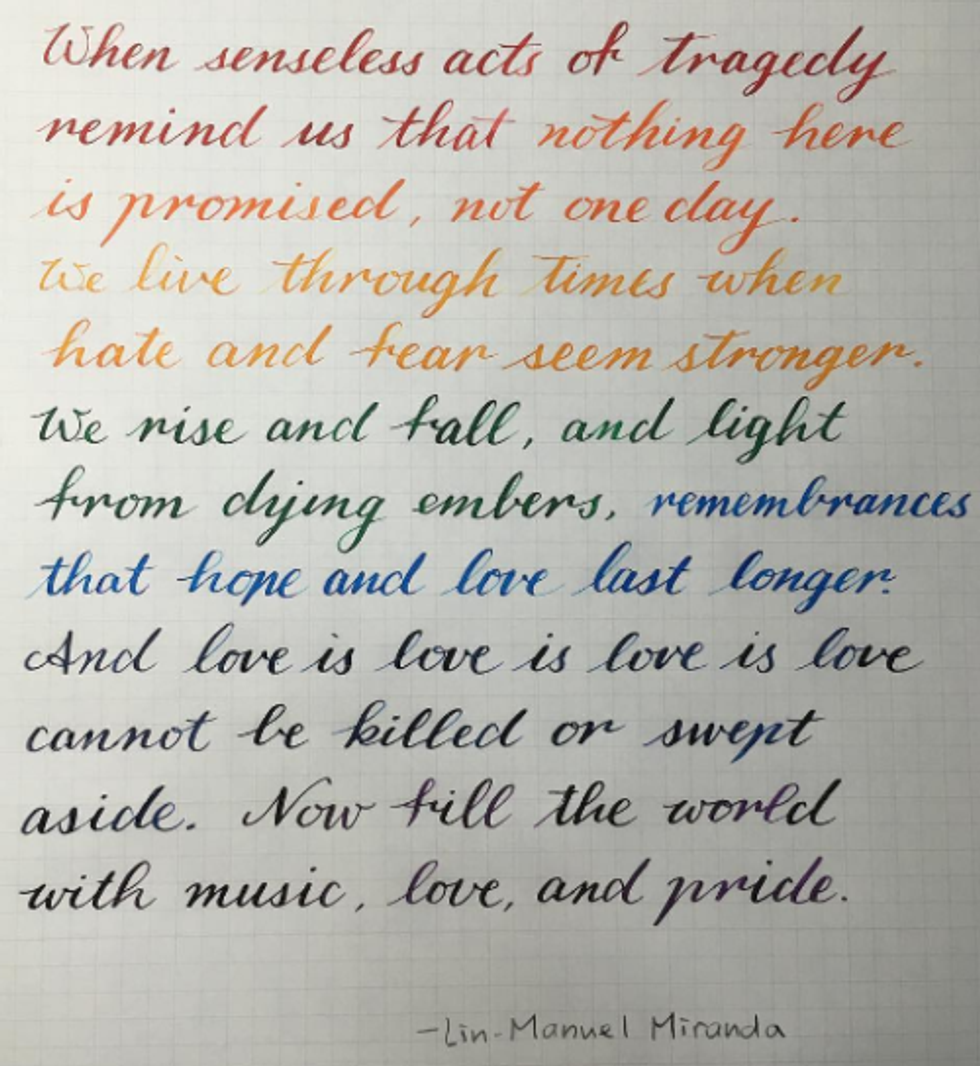 When senseless acts of tragedy
remind us that nothing here
is promised, not one day.
We live through times when
hate and fear seem stronger.
We rise and fall, and light
from dying embers, remembrances
that hope and love last longer.
And love is love is love is love
cannot be killed or swept
aside. Now fill the world
with music, love, and pride.
-Lin-Manuel Miranda